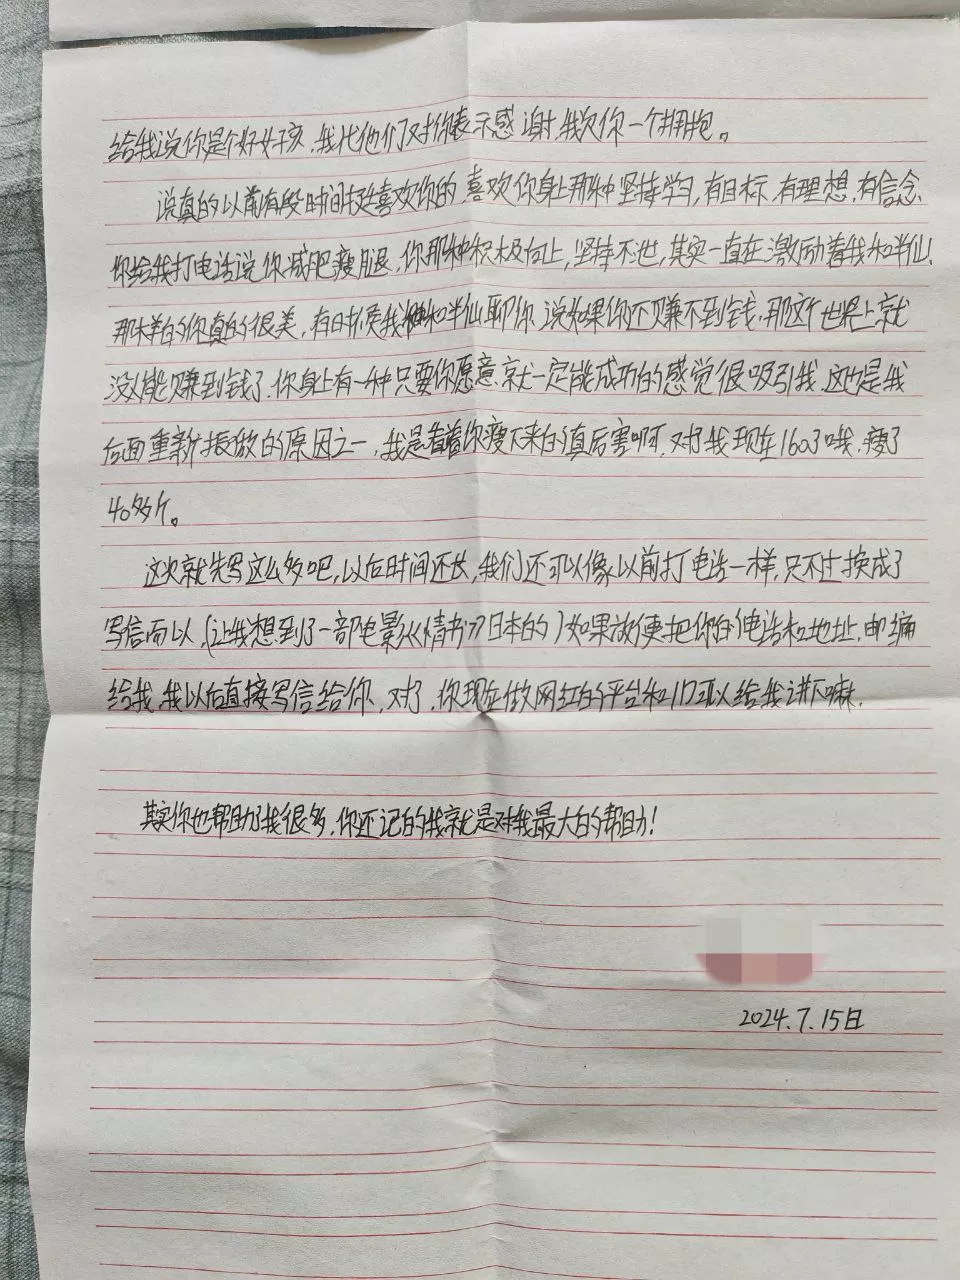 给我说你是个好女孩，我代他们对你表示感谢，我欠你一个拥抱。
说真的以前有段时间挺喜欢你的，喜欢你身上那种坚持学习，有目标，有理想，有信念
你给我打电话说你减肥瘦腿，你那种积极向上，坚持不池，其实一直在激励着我和半仙，
那样的你真的很美，有时候我和半仙聊你，说如果你还赚不到钱，那这个世界上就
没人能赚到钱了，你身上有一种只要你愿意就一定能成功的感觉很吸引我，这也是我
后面重新振做的原因之一，我是看着你瘦下来的真历害啊，对了我现在160了哦，瘦了
40多斤。
这次就先写这么多吧，以后时间还长，我们还可以像以前打电话一样，只不过换成了
写信而以，（让我想到了一部电影《情书》日本的）如果放便把你的电话和地址，邮编
给我，我以后直接写信给你，对了，你现在做网红的平台和ID可以给我讲下嘛，
其实你也帮助了我很多，你还记的我就是对我最大的帮助！
2024.7.15日